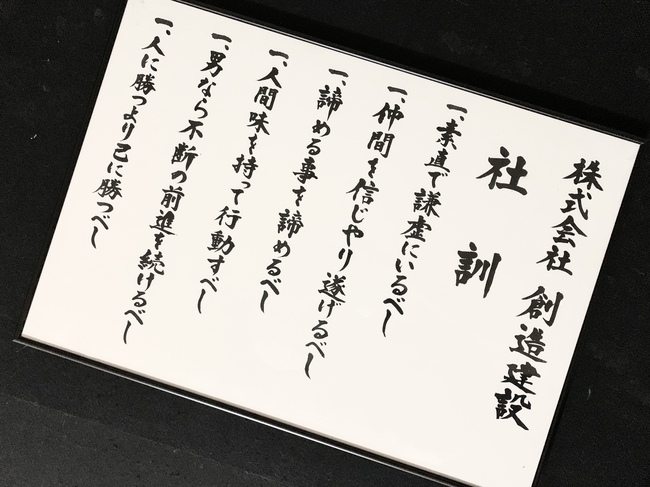 株式会社 創造建設
社訓
一、素直で謙虚にいるべし
一、仲間を信じやり遂げるべし
一、諦める事を諦めるべし
一、人間味を持って行動すべし
一、男なら不断の前進を続けるべし
一、人に勝つより己に勝つべし